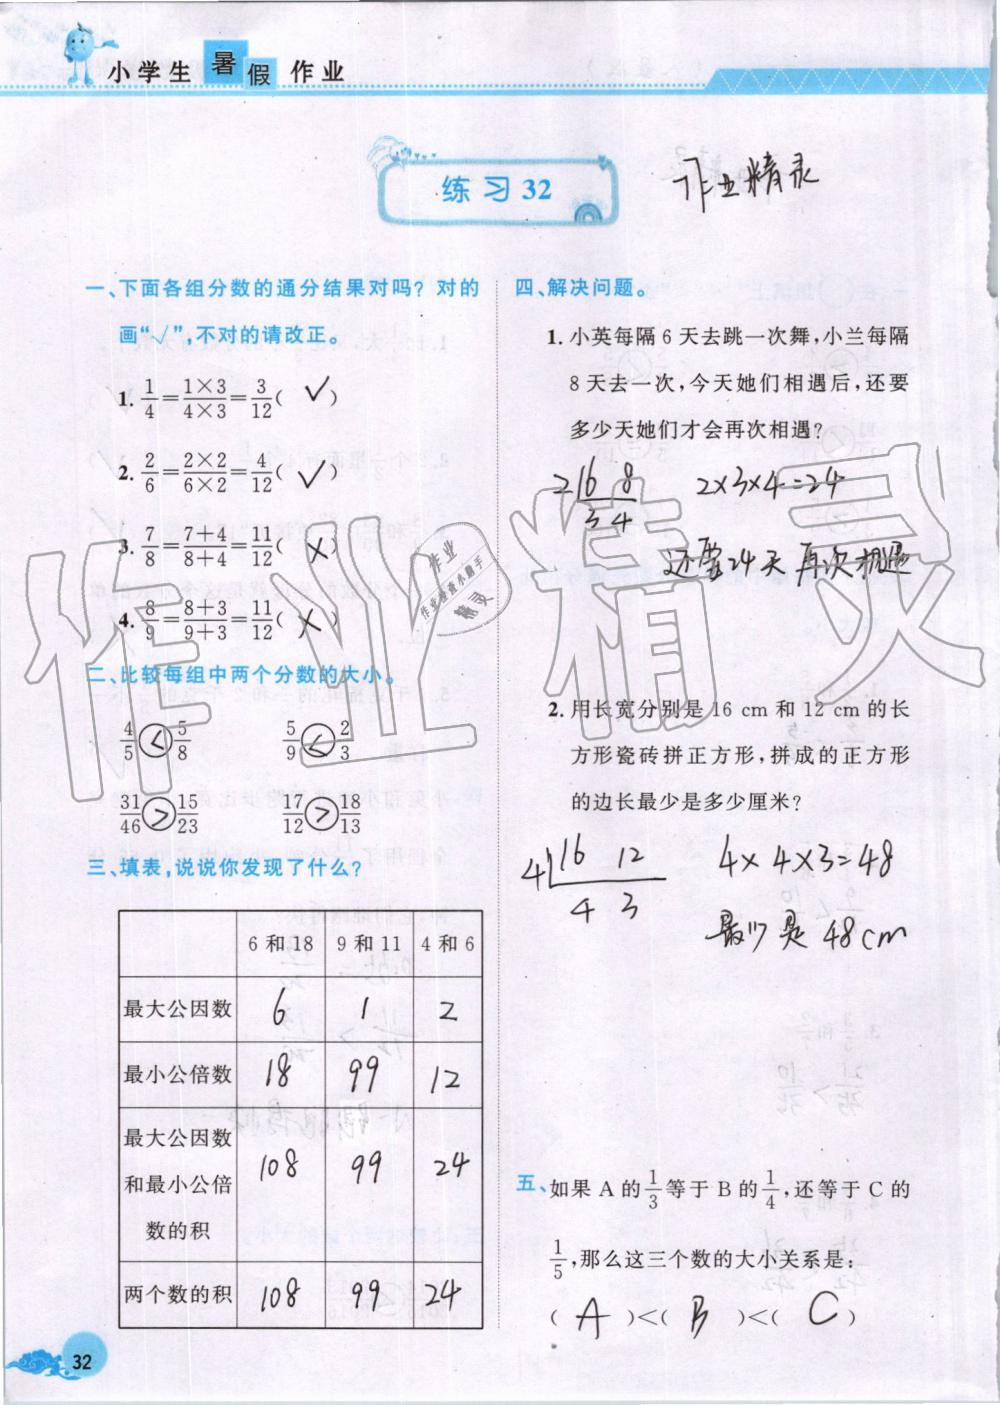 小学生 暑假 作业
练习32
作业精灵
一、下面各组分数的通分结果对吗？对的
画“√”,不对的请改正。
1. 1/4=1×3/4×3=3/12( ✓ )
2. 2/6=2×2/6×2=4/12( ✓ )
3. 7/8=7+4/8+4=11/12( × )
4. 8/9=8+3/9+3=11/12( × )
二、比较每组中两个分数的大小。
4/5 < 5/8 5/9 < 2/3
31/46 > 15/23 17/12 > 18/13
三、填表,说说你发现了什么?
6和18 9和11 4和6
最大公因数 6 1 2
最小公倍数 18 99 12
最大公因数
和最小公倍 108 99 24
数的积
两个数的积 108 99 24
32
四、解决问题。
1. 小英每隔6天去跳一次舞,小兰每隔
8天去一次,今天她们相遇后,还要
多少天她们才会再次相遇?
2 6 8 2×3×4=24
3 4
还需24天再次相遇
作业
作业检查小助手
精灵
作业精灵
2. 用长宽分别是16 cm和12 cm的长
方形瓷砖拼正方形,拼成的正方形
的边长最少是多少厘米?
4 16 12 4×4×3=48
4 3
最少是48cm
五、如果A的1/3等于B的1/4,还等于C的
1/5,那么这三个数的大小关系是:
( A )<( B )<( C )